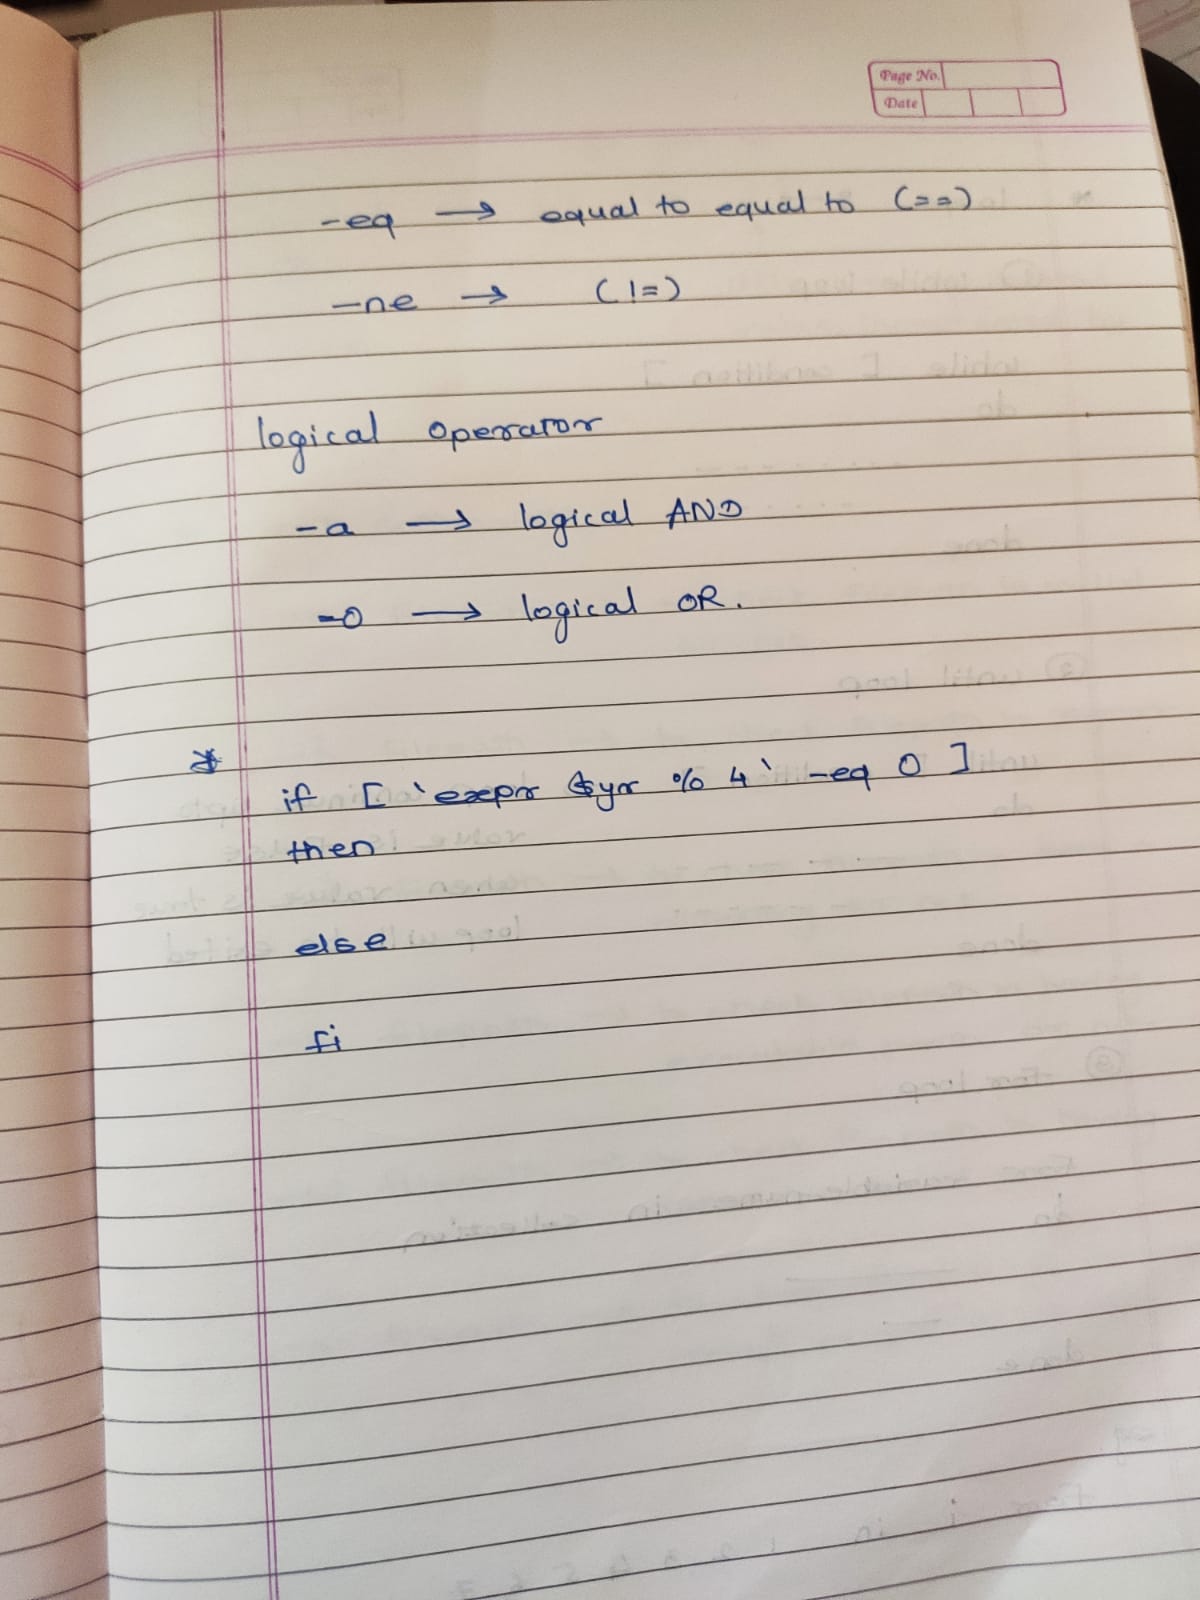 Page No.
Date
-eq → equal to equal to (==)
-ne → (!=)
logical operator
-a → logical AND
-o → logical OR.
* if [ `expr $yr % 4` -eq 0 ]
then
else
fi